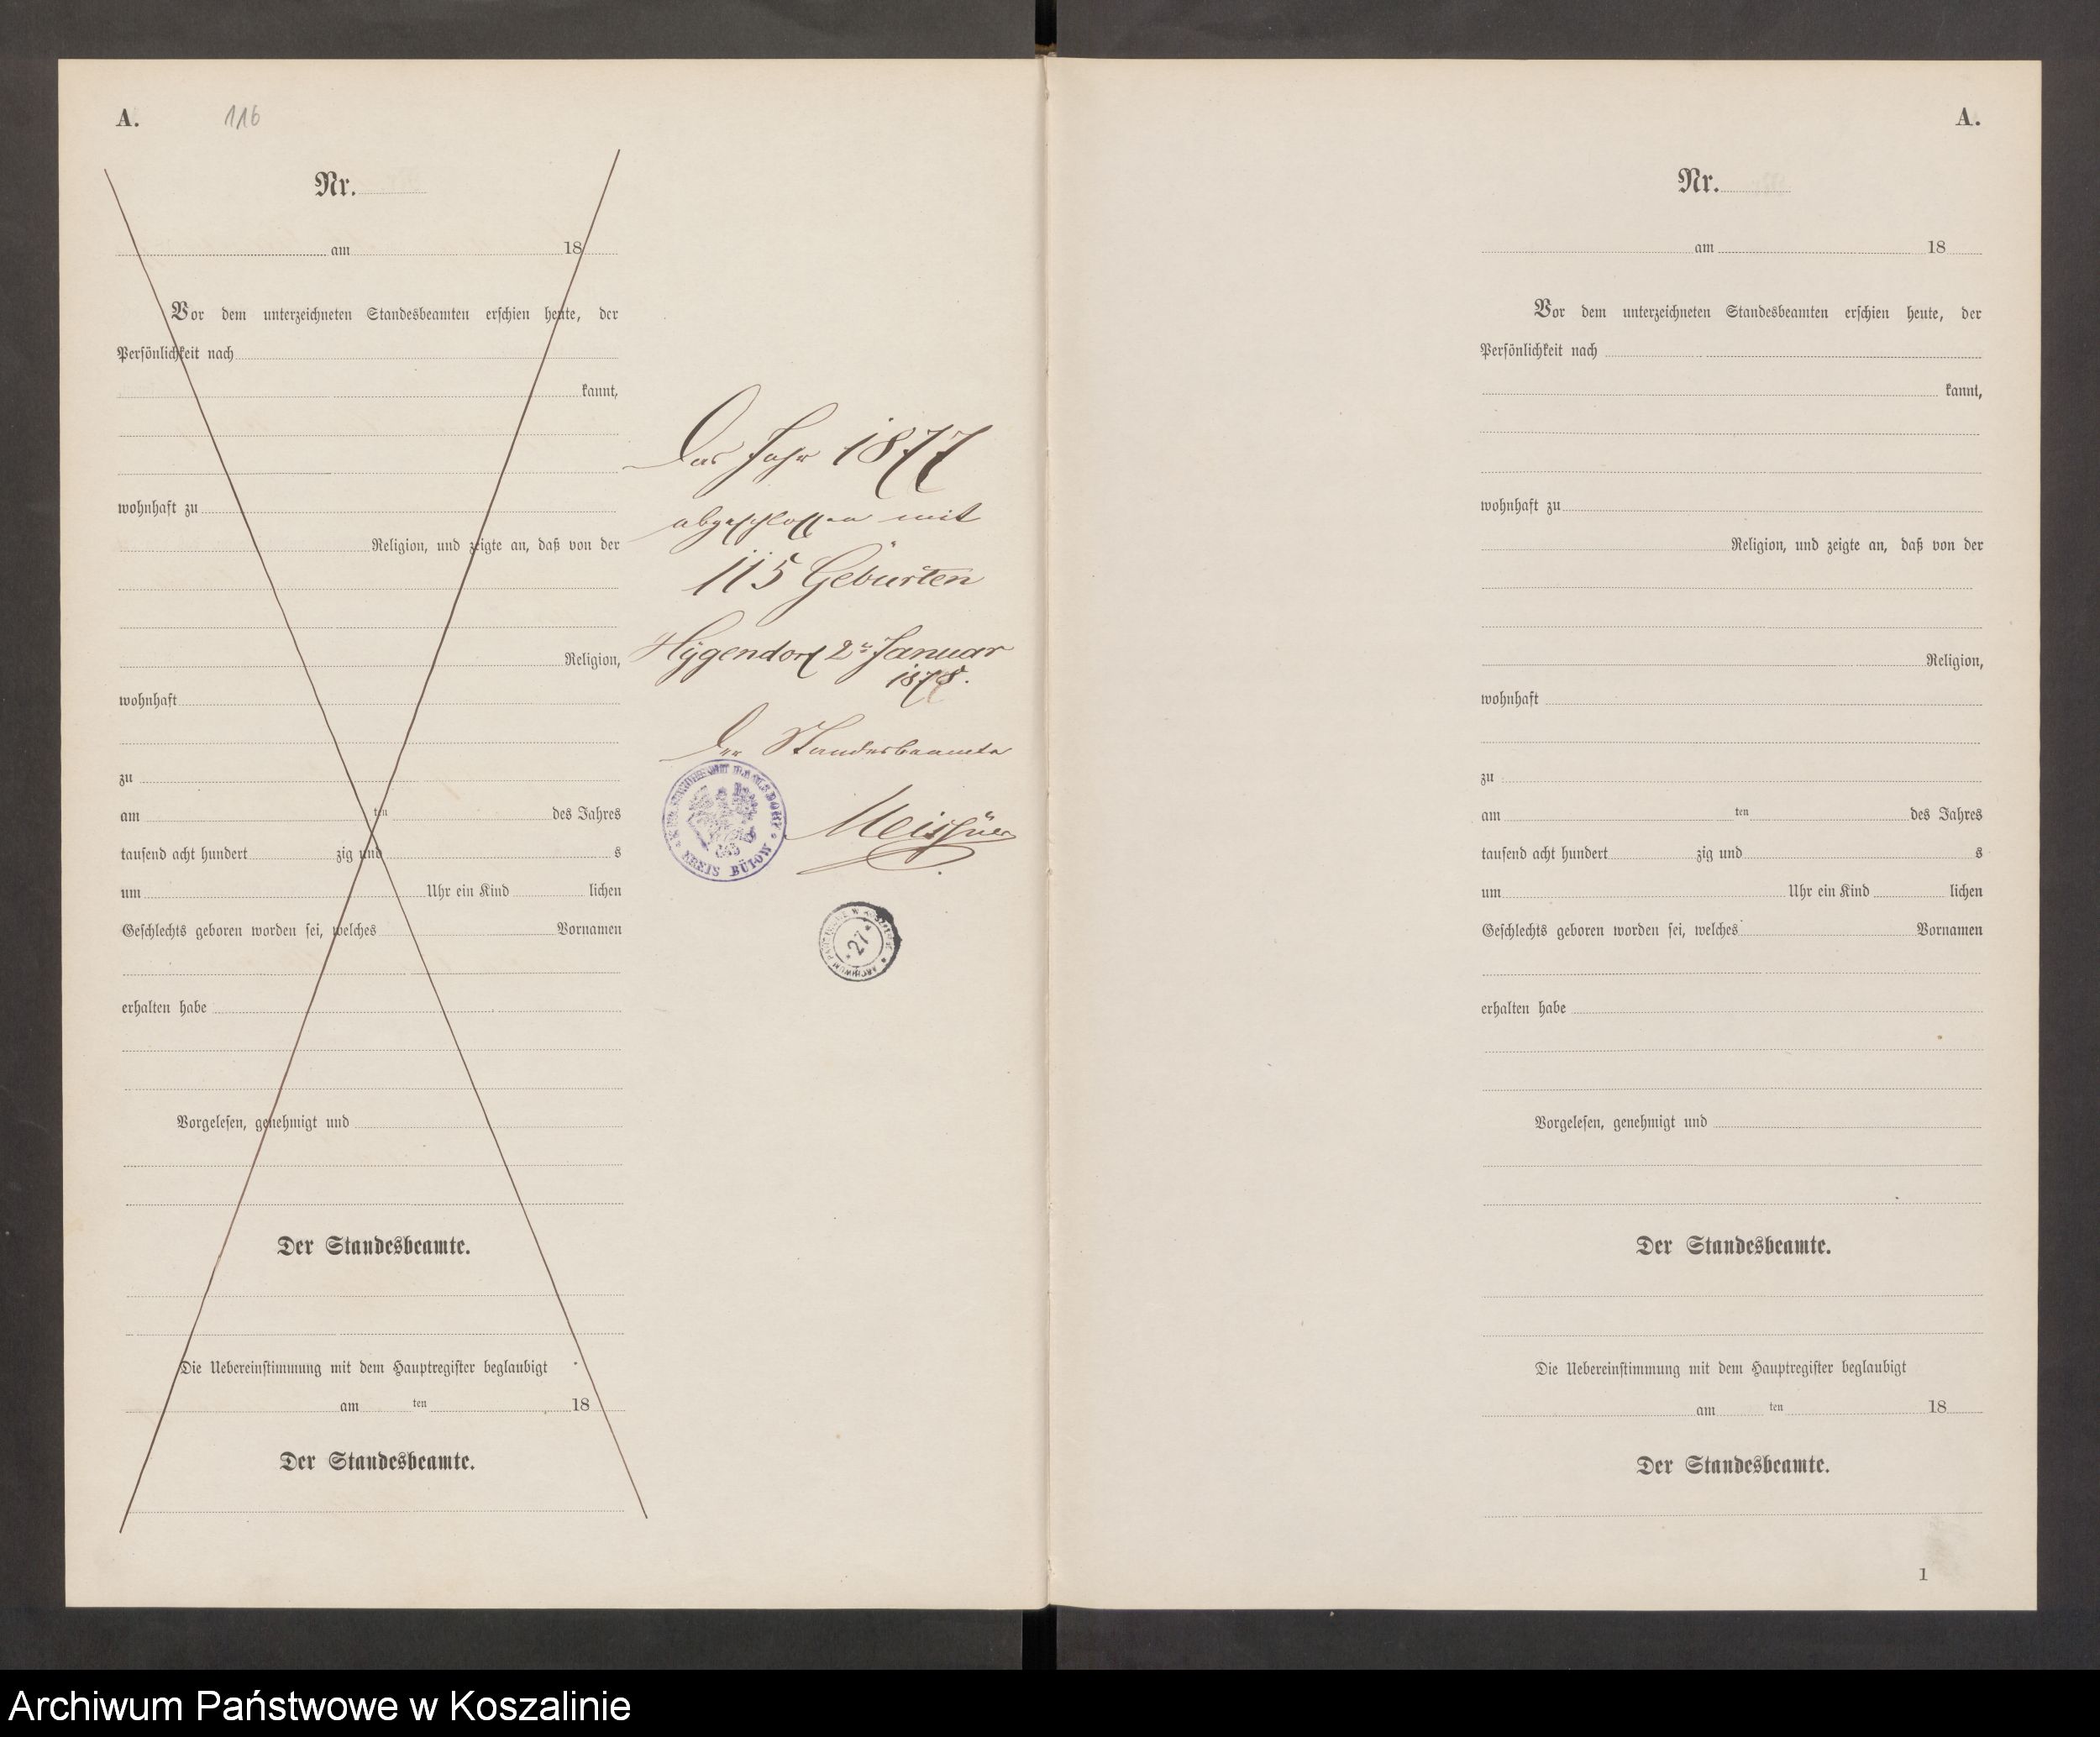 A.
116
Nr.
am 18
Vor dem unterzeichneten Standesbeamten erschien heute, der
Persönlichkeit nach
kannt,
wohnhaft zu
Religion, und zeigte an, daß von der
Religion,
wohnhaft
zu
am ten des Jahres
tausend acht hundert zig und s
um Uhr ein Kind lichen
Geschlechts geboren worden sei, welches Vornamen
erhalten habe
Vorgelesen, genehmigt und
Der Standesbeamte.
Die Uebereinstimmung mit dem Hauptregister beglaubigt
am ten 18
Der Standesbeamte.
Das Jahr 1877
abgeschlossen mit
115 Geburten
Hygendorf 2ⁿ Januar
1878.
Der Standesbeamte
KREIS BÜTOW
Meissner
27
A.
Nr.
am 18
Vor dem unterzeichneten Standesbeamten erschien heute, der
Persönlichkeit nach
kannt,
wohnhaft zu
Religion, und zeigte an, daß von der
Religion,
wohnhaft
zu
am ten des Jahres
tausend acht hundert zig und s
um Uhr ein Kind lichen
Geschlechts geboren worden sei, welches Vornamen
erhalten habe
Vorgelesen, genehmigt und
Der Standesbeamte.
Die Uebereinstimmung mit dem Hauptregister beglaubigt
am ten 18
Der Standesbeamte.
1
Archiwum Państwowe w Koszalinie